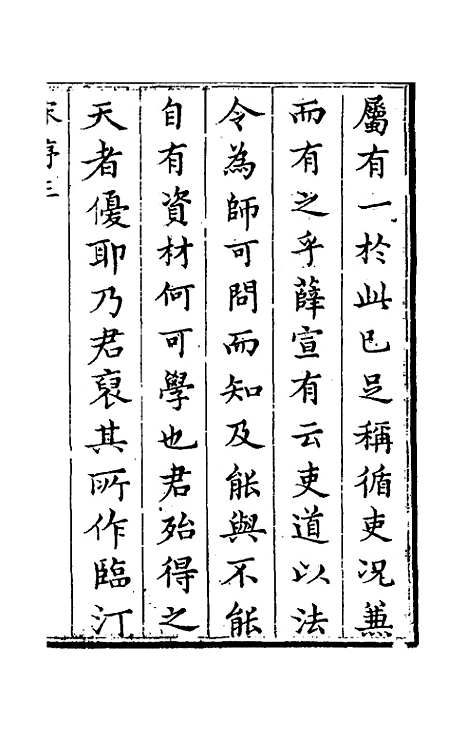 屬有一於此已足稱循吏況兼
而有之乎薛宣有云吏道以法
令為師可問而知及能與不能
自有資材何可學也君殆得之
天者優耶乃君裒其所作臨汀
宋序三